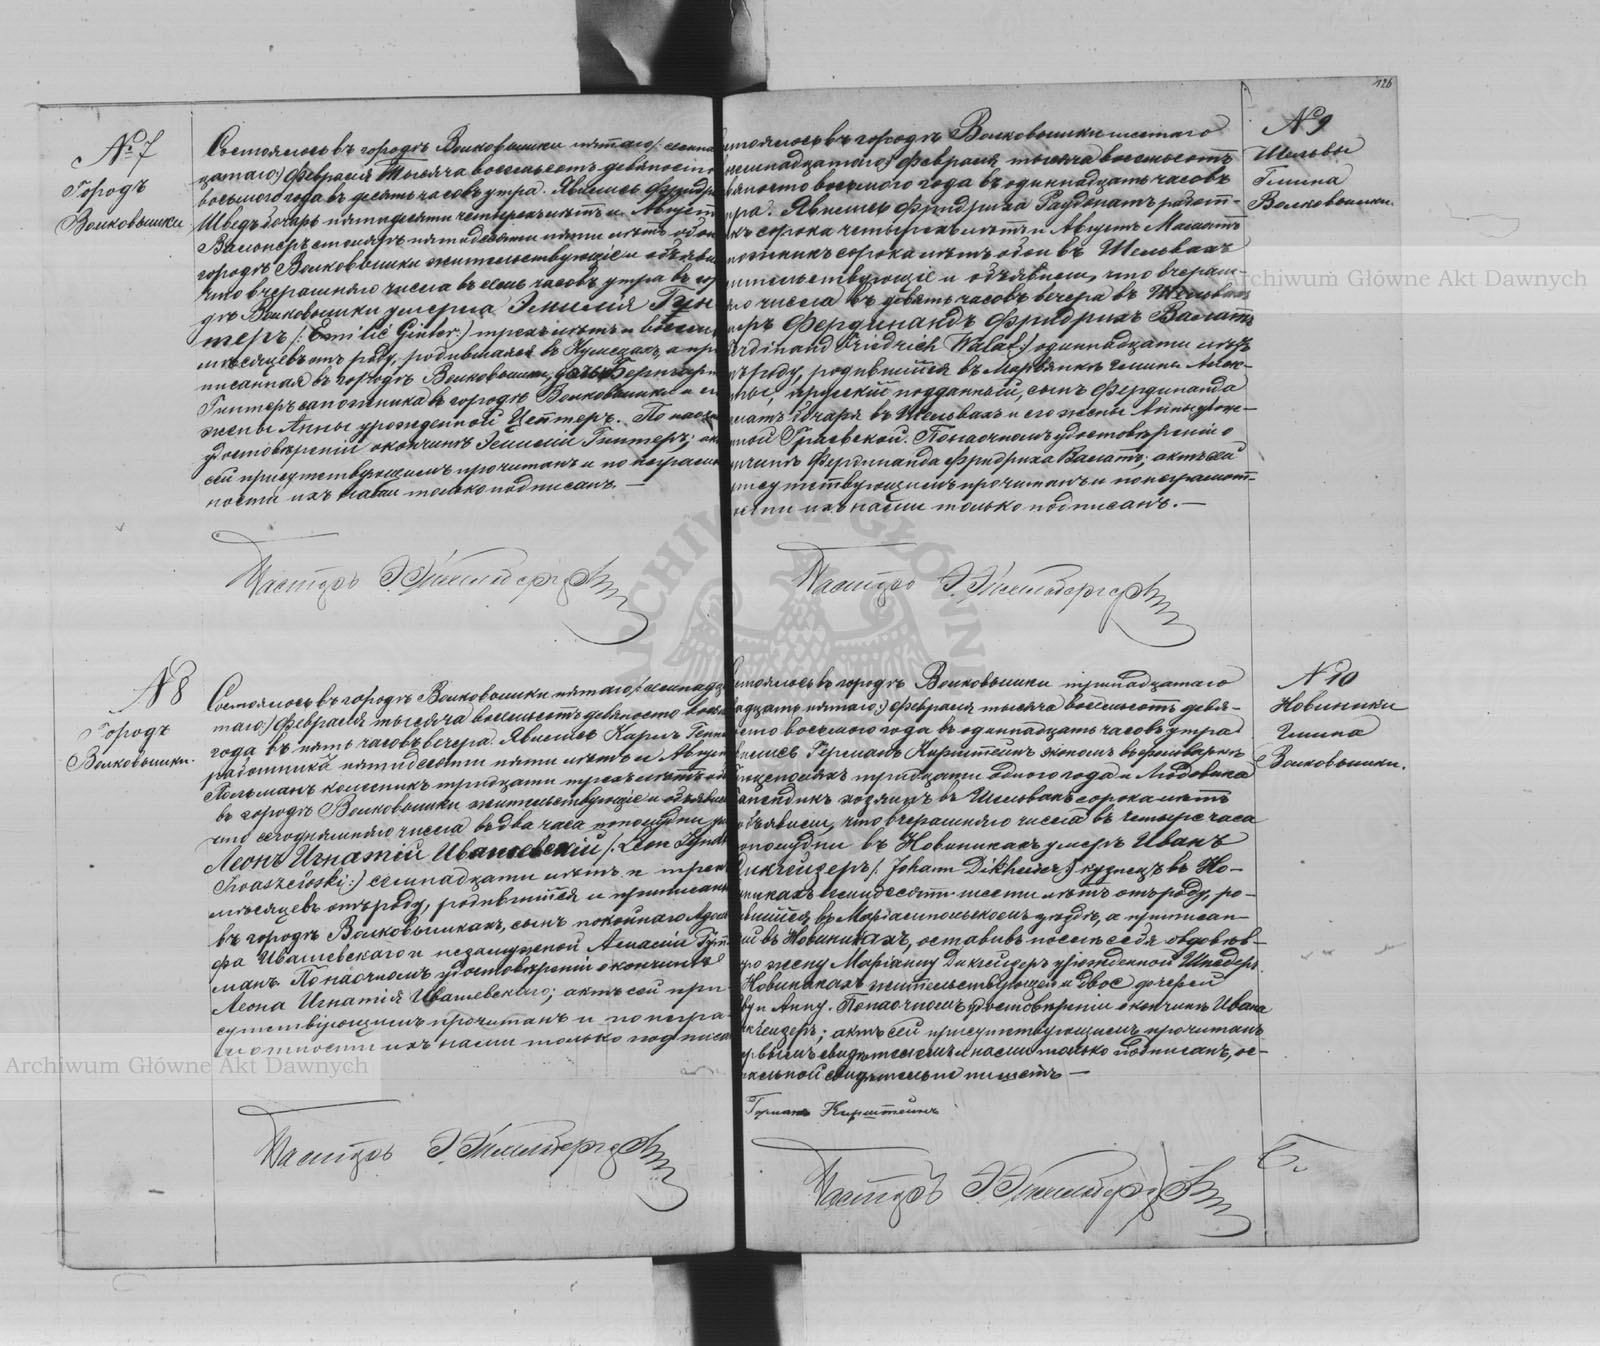 126
№ 7
Городъ
Волковышки
Состоялось въ городѣ Волковышки пятаго /: семнад
цатаго :/ Февраля Тысяча восемьсотъ девяносто
восьмаго года въ десять часовъ утра. Явились Фридри
Шведъ бочаръ пятидесяти четырехъ лѣтъ и Августъ
столяръ пятидесяти пяти лѣтъ оба
городѣ Волковышки жительствующіе и объяви
что вчерашняго числа въ семь часовъ утра въ го
дѣ Волковышки умерла Эмилія Гин
теръ /: Emilie Ginter :/ трехъ лѣтъ и восьми
мѣсяцевъ отъ роду, родившаяся въ а при
писанная въ городѣ Волковышки, дочь
Гинтеръ сапожника въ городѣ Волковышки и его
жены Анны урожденной Цеттеръ. По наоч
удостовѣреніи окончинѣ Эмиліи Гинтеръ; ак
сей присутствующимъ прочитанъ и по неграмот
ности ихъ нами только подписанъ. —
Пасторъ
№ 8
Городъ
Волковышки.
Состоялось въ городѣ Волковышки пятаго /: семнадца
таго :/ Февраля тысяча восемьсотъ девяносто восьм
года въ пять часовъ вечера. Явились Карлъ
работника пятидесяти пяти лѣтъ и Августъ
Польманъ колесникъ тридцати трехъ лѣтъ оба
въ городѣ Волковышки жительствующіе и объявили
что сегодняшняго числа въ два часа пополудни ум
Леонъ Игнатій Ивашевскій /: Leon Ignat
Iwaszewski :/ семнадцати лѣтъ и трехъ
мѣсяцевъ отъ роду, родившійся и приписан
въ городѣ Волковышкахъ, сынъ покойнаго Адоль
фа Ивашевскаго и незамужней Амаліи Гут
манъ. По наочномъ удостовѣреніи о кончинѣ
Леона Игнатія Ивашевскаго; актъ сей при
сутствующимъ прочитанъ и по негра
мотности ихъ нами только подписа
Пасторъ
№ 9
Шельвы
Гмина
Волковышки.
стоялось въ городѣ Волковышки шестаго
семнадцатаго :/ Февраля тысяча восемьсотъ
вяносто восьмаго года въ одиннадцать часовъ
тра. Явились Фридрихъ работ-
къ сорока четырехъ лѣтъ и Августъ
ботникъ сорока лѣтъ оба въ Шельвахъ
ительствующіе и объявили, что вчераш-
го числа въ девять часовъ вечера въ Шельвахъ
меръ Фердинандъ Фридрихъ Валатъ
erdinand Friedrich Walat :/ одиннадцати лѣтъ
ъ роду, родившійся въ гмины Алек-
прусскій подданный, сынъ Фердинанда
латъ бочаря въ Шельвахъ и его жены Анны урож-
ной Граевской. По наочномъ удостовѣреніи о
нчинѣ Фердинанда Фридриха Валатъ; актъ сей
рисутствующимъ прочитанъ и по неграмот-
ности ихъ нами только подписанъ. —
Пасторъ
№ 10
Новиники
Гмина
Волковышки.
стоялось въ городѣ Волковышки тринадцатаго
адцать пятаго :/ Февраля тысяча восемьсотъ девя-
осто восьмаго года въ одиннадцать часовъ утра
вились Германъ Кирштейнъ экономъ въ фольваркѣ
тридцати одного года и Людовикъ
хозяинъ въ Шельвахъ сорока лѣтъ
объявили, что вчерашняго числа въ четыре часа
ополудни въ Новиникахъ умеръ Иванъ
Дикгейзеръ /: Johann Dikheiser :/ кузнецъ въ Но-
иникахъ семидесяти шести лѣтъ отъ роду, ро-
ившійся въ Маріампольскомъ уѣздѣ, а приписан-
ый въ Новиникахъ, оставивъ послѣ себя овдовѣв-
ую жену Маріанну Дикгейзеръ урожденной Шнедеръ
Новиникахъ жительствующей и двое дочерей
и Анну. По наочномъ удостовѣреніи о кончинѣ Ивана
икгейзеръ; актъ сей присутствующимъ прочитанъ
ервымъ свидѣтелемъ и нами только подписанъ, ос-
тальной свидѣтель не пишетъ —
Германъ Кирштейнъ
Пасторъ
Archiwum Główne Akt Dawnych
Archiwum Główne Akt Dawnych